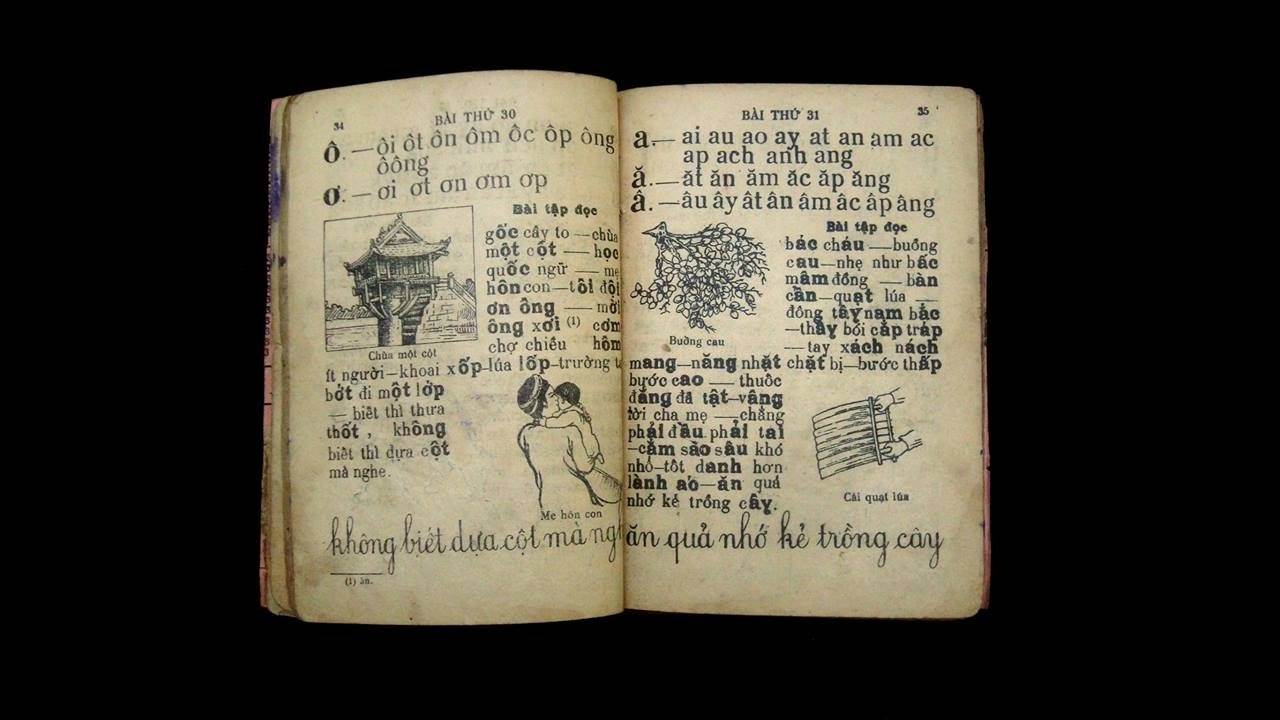 34
BÀI THỨ 30
Ô. — ôi ôt ôn ôm ôc ôp ông
ôông
Ơ. — ơi ơt ơn ơm ơp
Bài tập đọc
gốc cây to — chùa
một cột — học
quốc ngữ — mẹ
hôn con — tôi đội
ơn ông — mời
ông xơi (1) cơm
chợ chiều hôm
Chùa một cột
ít người — khoai xốp — lúa lốp — trường
bớt đi một lớp
— biết thì thưa
thốt, không
biết thì dựa cột
mà nghe.
Mẹ hôn con
không biết dựa cột mà
(1) ăn.
35
BÀI THỨ 31
a. — ai au ao ay at an am ac
ap ach anh ang
ă. — ăt ăn ăm ăc ăp ăng
â. — âu ây ât ân âm âc âp âng
Bài tập đọc
bác cháu — buồng
cau — nhẹ như bấc
mâm đồng — bàn
cần — quạt lúa —
đông tây nam bắc
— thầy bói cắp tráp
— tay xách nách
Buồng cau
mang — năng nhặt chặt bị — bước thấp
bước cao — thuốc
đắng đã tật — vâng
lời cha mẹ — chẳng
phải đầu phải tai
— cắm sào sâu khó
nhổ — tốt danh hơn
lành áo — ăn quả
nhớ kẻ trồng cây.
Cái quạt lúa
ăn quả nhớ kẻ trồng cây